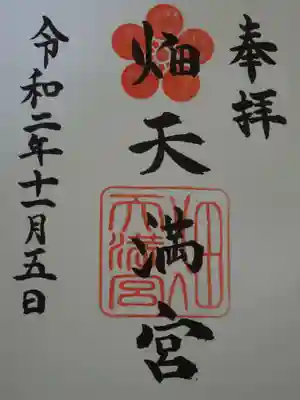 奉拝
畑天満宮
令和二年十一月五日
畑天満宮